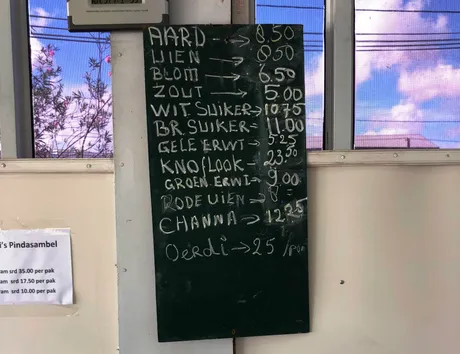 AARD → 8.50
UIEN → 850
BLOM → 6.50
ZOUT → 5.00
WIT SUIKER → 10.75
BR. SUIKER → 11.00
GELE ERWT → 5.25
KNOFLOOK → 23.50
GROEN ERWT → 9.00
RODE UIEN →
CHANNA → 12.25
OERDI → 25
's Pindasambel
am srd 35.00 per pak
am srd 17.50 per pak
am srd 10.00 per pak